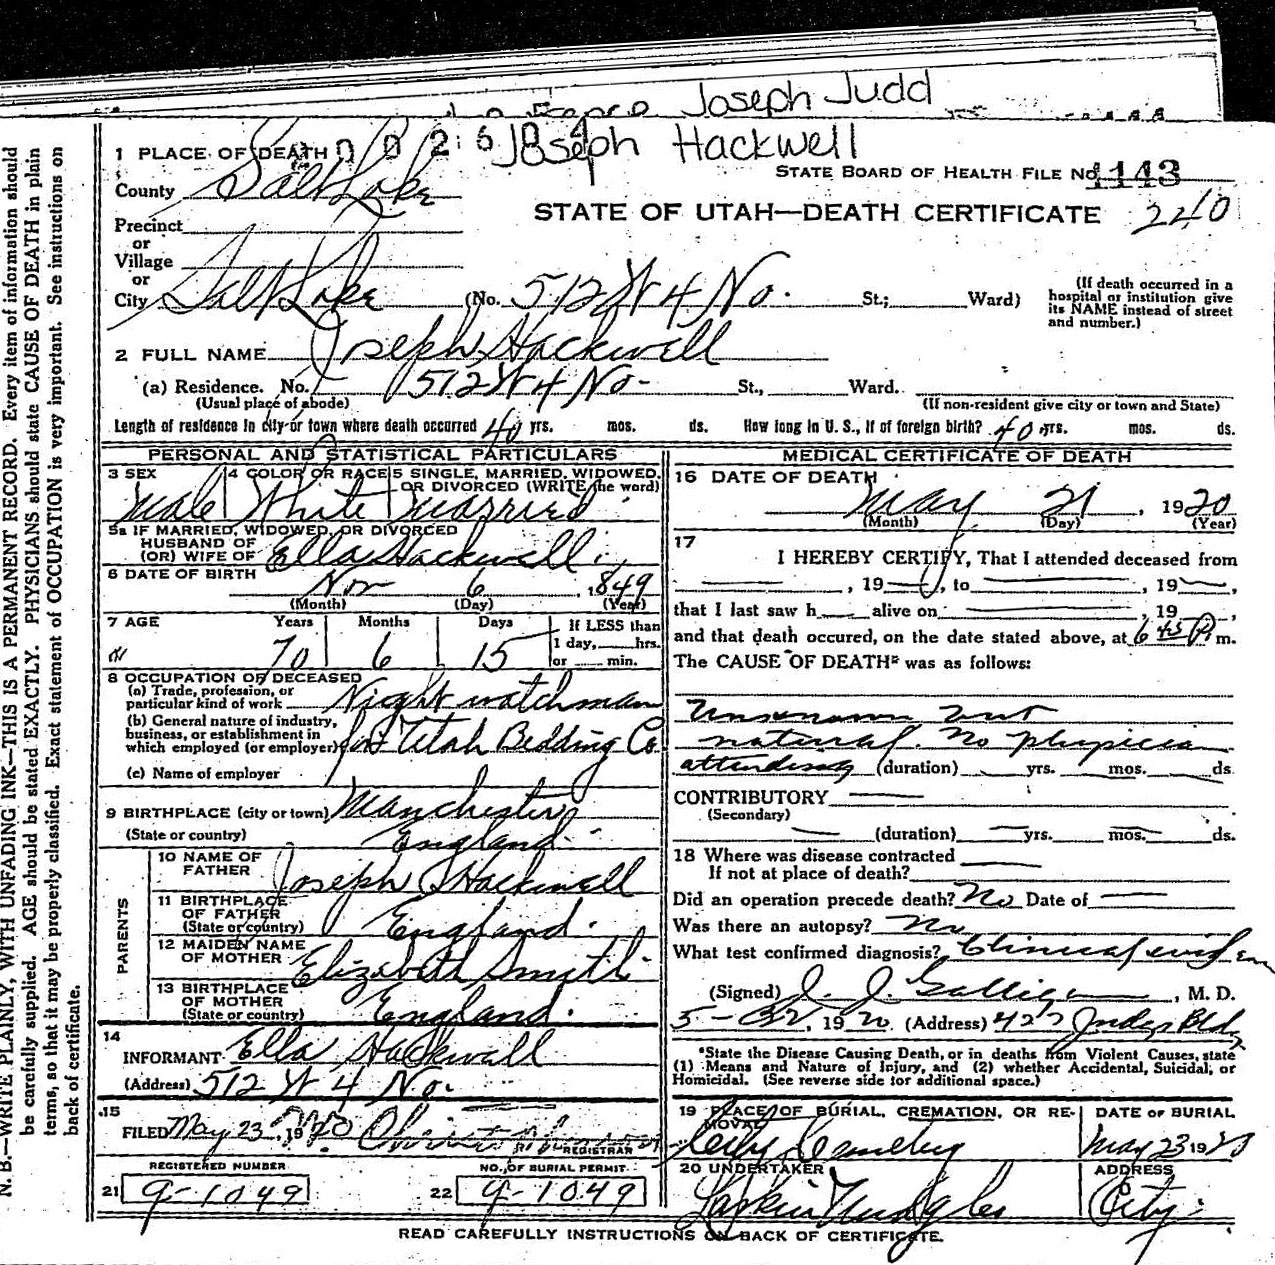 Joseph Judd
Joseph Hackwell
1 PLACE OF DEATH
STATE BOARD OF HEALTH FILE No. 1143
County Salt Lake
STATE OF UTAH—DEATH CERTIFICATE 240
Precinct
or
Village
or
City Salt Lake (No. 512 W 4 No. St.; Ward)
(If death occurred in a hospital or institution give its NAME instead of street and number.)
2 FULL NAME Joseph Hackwell
(a) Residence. No. 512 W 4 No. St., Ward.
(Usual place of abode) (If non-resident give city or town and State)
Length of residence in city or town where death occurred 40 yrs. mos. ds. How long in U. S., if of foreign birth? 40 yrs. mos. ds.
PERSONAL AND STATISTICAL PARTICULARS
3 SEX 4 COLOR OR RACE 5 SINGLE, MARRIED, WIDOWED, OR DIVORCED (WRITE the word)
Male White Married
5a IF MARRIED, WIDOWED, OR DIVORCED
HUSBAND OF
(OR) WIFE OF Ella Hackwell
6 DATE OF BIRTH Nov 6, 1849
(Month) (Day) (Year)
7 AGE Years Months Days If LESS than
1 day, hrs.
70 6 15 or min.
8 OCCUPATION OF DECEASED
(a) Trade, profession, or particular kind of work Night watchman
(b) General nature of industry, business, or establishment in which employed (or employer) for Utah Bedding Co.
(c) Name of employer
9 BIRTHPLACE (city or town) Manchester
(State or country) England
PARENTS
10 NAME OF FATHER Joseph Hackwell
11 BIRTHPLACE OF FATHER (State or country) England.
12 MAIDEN NAME OF MOTHER Elizabeth Smith
13 BIRTHPLACE OF MOTHER (State or country) England.
14
INFORMANT Ella Hackwell
(Address) 512 W 4 No.
15
FILED May 23, 1920 REGISTRAR
REGISTERED NUMBER NO. OF BURIAL PERMIT
21 9-1049 22 9-1049
MEDICAL CERTIFICATE OF DEATH
16 DATE OF DEATH
May 21, 1920
(Month) (Day) (Year)
17
I HEREBY CERTIFY, That I attended deceased from
, 19 , to , 19 ,
that I last saw h alive on , 19 ,
and that death occured, on the date stated above, at 6 45 P m.
The CAUSE OF DEATH* was as follows:
Unknown but
natural. No physician
attending (duration) yrs. mos. ds.
CONTRIBUTORY
(Secondary)
(duration) yrs. mos. ds.
18 Where was disease contracted
If not at place of death?
Did an operation precede death? No Date of
Was there an autopsy? No
What test confirmed diagnosis? Clinical
(Signed) J. J. Galligan, M. D.
, 1920 (Address) Judge Bldg
*State the Disease Causing Death, or in deaths from Violent Causes, state
(1) Means and Nature of Injury, and (2) whether Accidental, Suicidal, or
Homicidal. (See reverse side for additional space.)
19 PLACE OF BURIAL, CREMATION, OR REMOVAL DATE OF BURIAL
City Cemetery May 23 19
20 UNDERTAKER ADDRESS
City
READ CAREFULLY INSTRUCTIONS ON BACK OF CERTIFICATE.
N. B.—WRITE PLAINLY, WITH UNFADING INK—THIS IS A PERMANENT RECORD. Every item of information should
be carefully supplied. AGE should be stated EXACTLY. PHYSICIANS should state CAUSE OF DEATH in plain
terms, so that it may be properly classified. Exact statement of OCCUPATION is very important. See instructions on
back of certificate.